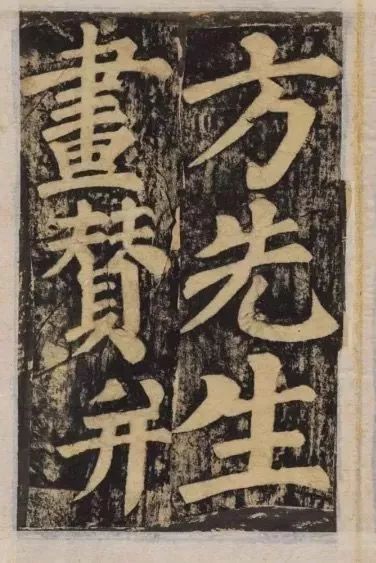 方先生
畫賛并